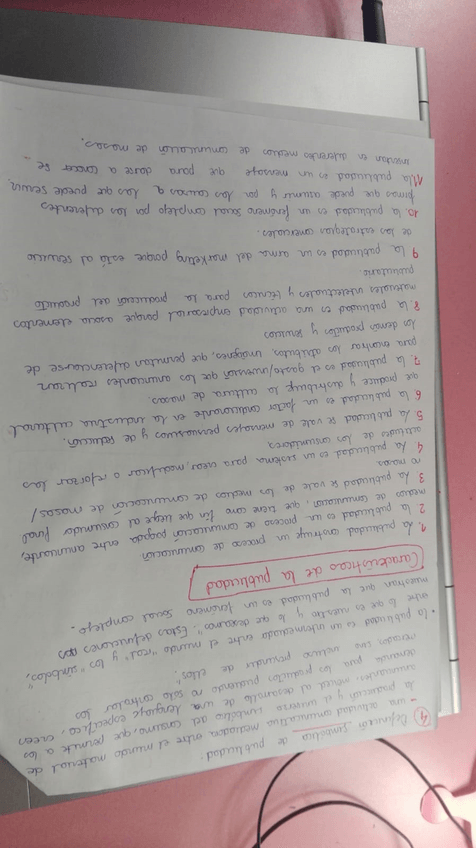 4 Definición semiótica de publicidad:
- una actividad comunicativa mediadora entre el mundo material de
la producción y el universo simbólico del consumo, que permite a los
anunciantes, merced al desarrollo de un lenguaje específico, crear
demanda para los productos pudiendo no solo controlar los
mercados sino incluso prescindir de ellos."
• "la publicidad es un intermediador entre el mundo "real" y los "símbolos",
entre lo que es nuestro y lo que deseamos". Estas definiciones
muestran que la publicidad es un fenómeno social complejo.
Características de la publicidad
1. La publicidad constituye un proceso de comunicación
2 La publicidad es un proceso de comunicación pagado entre anunciante,
medios de comunicación, que tiene como fin que llegue al consumidor final
3 La publicidad se vale de los medios de comunicación de masas/
no masas
4. La publicidad es un sistema para crear, modificar o reforzar las
actitudes de los consumidores
5. La publicidad se vale de mensajes persuasivos y de seducción.
6 La publicidad es un factor condicionante en la industria cultural
que produce y distribuye la cultura de masas.
7. La publicidad es el gasto/inversión que los anunciantes realizan
para mostrar los atributos, imágenes, que permitan diferenciarse de
los demás productos y servicios
8. La publicidad es una actividad empresarial porque asocia elementos
materiales intelectuales y técnicos para la producción del producto
publicitario
9 La publicidad es un arma del marketing porque está al servicio
de las estrategias comerciales.
10. La publicidad es un fenómeno social complejo por las diferentes
formas que puede asumir y por las causas a las que puede servir.
11. La publicidad es un mensaje que para darse a conocer se
insertan en diferentes medios de comunicación de masas.